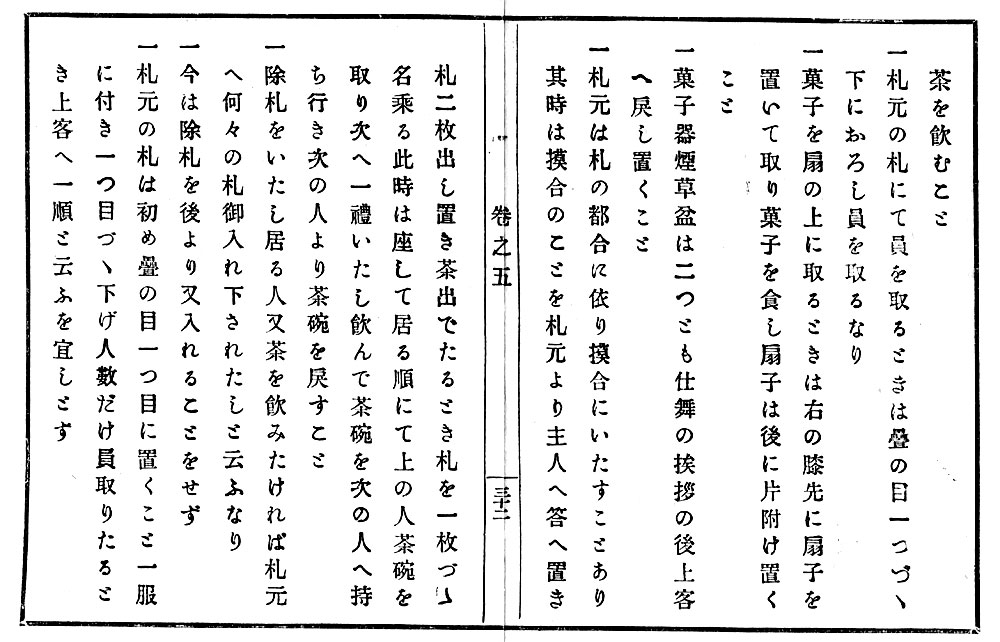 茶を飲むこと
一札元の札にて員を取るときは疊の目一つづヽ
下におろし員を取るなり
一菓子を扇の上に取るときは右の膝先に扇子を
置いて取り菓子を食し扇子は後に片附け置く
こと
一菓子器煙草盆は二つとも仕舞の挨拶の後上客
へ戻し置くこと
一札元は札の都合に依り摸合にいたすことあり
其時は摸合のことを札元より主人へ答へ置き
卷之五
三十二
札二枚出し置き茶出でたるとき札を一枚づヽ
名乘る此時は座して居る順にて上の人茶碗を
取り次へ一禮いたし飲んで茶碗を次の人へ持
ち行き次の人より茶碗を戻すこと
一除札をいたし居る人又茶を飲みたければ札元
へ何々の札御入れ下されたしと云ふなり
一今は除札を後より又入れることをせず
一札元の札は初め疊の目一つ目に置くこと一服
に付き一つ目づヽ下げ人數だけ員取りたると
き上客へ一順と云ふを宜しとす